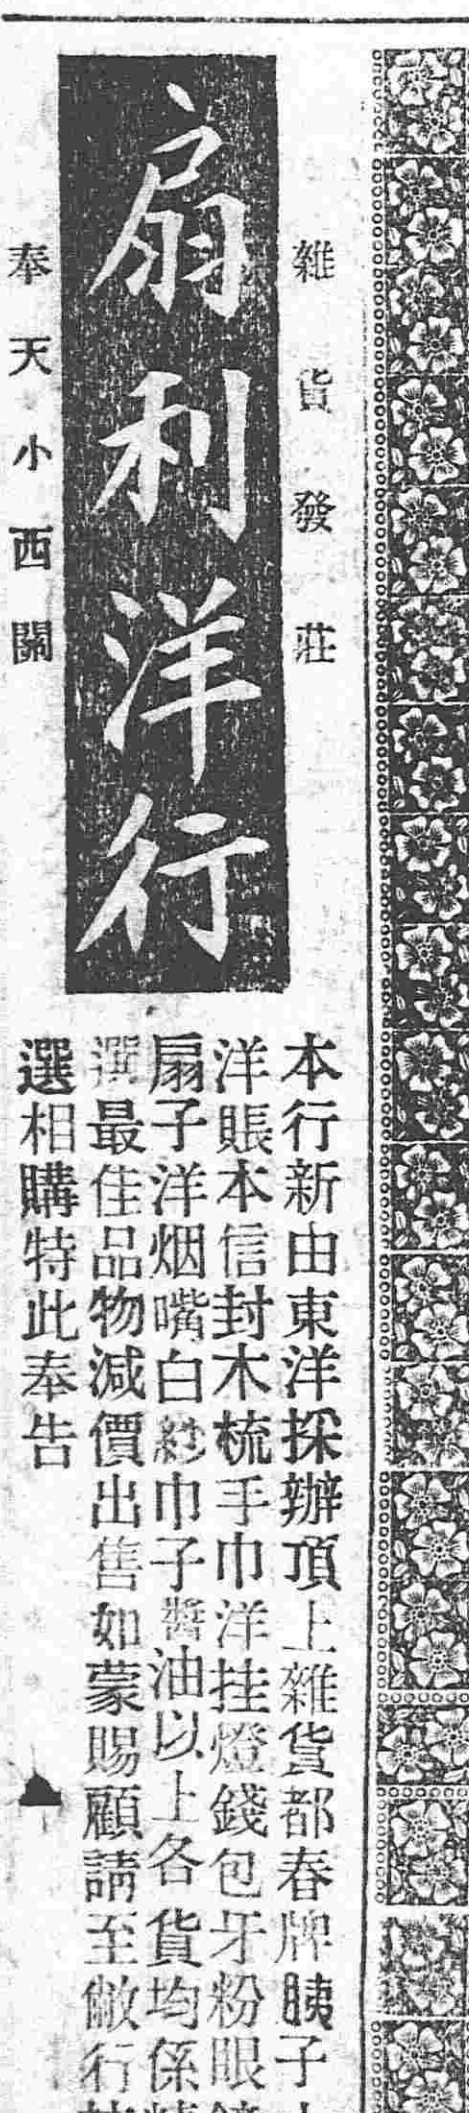 雜貨發莊
扇利洋行
奉天小西關
本行新由東洋採辦頂上雜貨都春牌胰子
洋賬本信封木梳手巾洋挂燈錢包牙粉眼
扇子洋烟嘴白紗巾子醬油以上各貨均係
選最佳品物減價出售如蒙賜顧請至敝行
選相購特此奉告